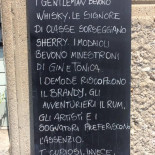 I GENTLEMAN BEVONO
WHISKY, LE SIGNORE
DI CLASSE SORSEGGIANO
SHERRY. I MODAIOLI
BEVONO MINESTRONI
DI GIN E TONICA.
I DEMODÉ RISCOPRONO
IL BRANDY, GLI
AVVENTURIERI IL RUM,
GLI ARTISTI E I
SOGNATORI PREFERISCONO
L'ASSENZIO.
I CURIOSI, INVECE,